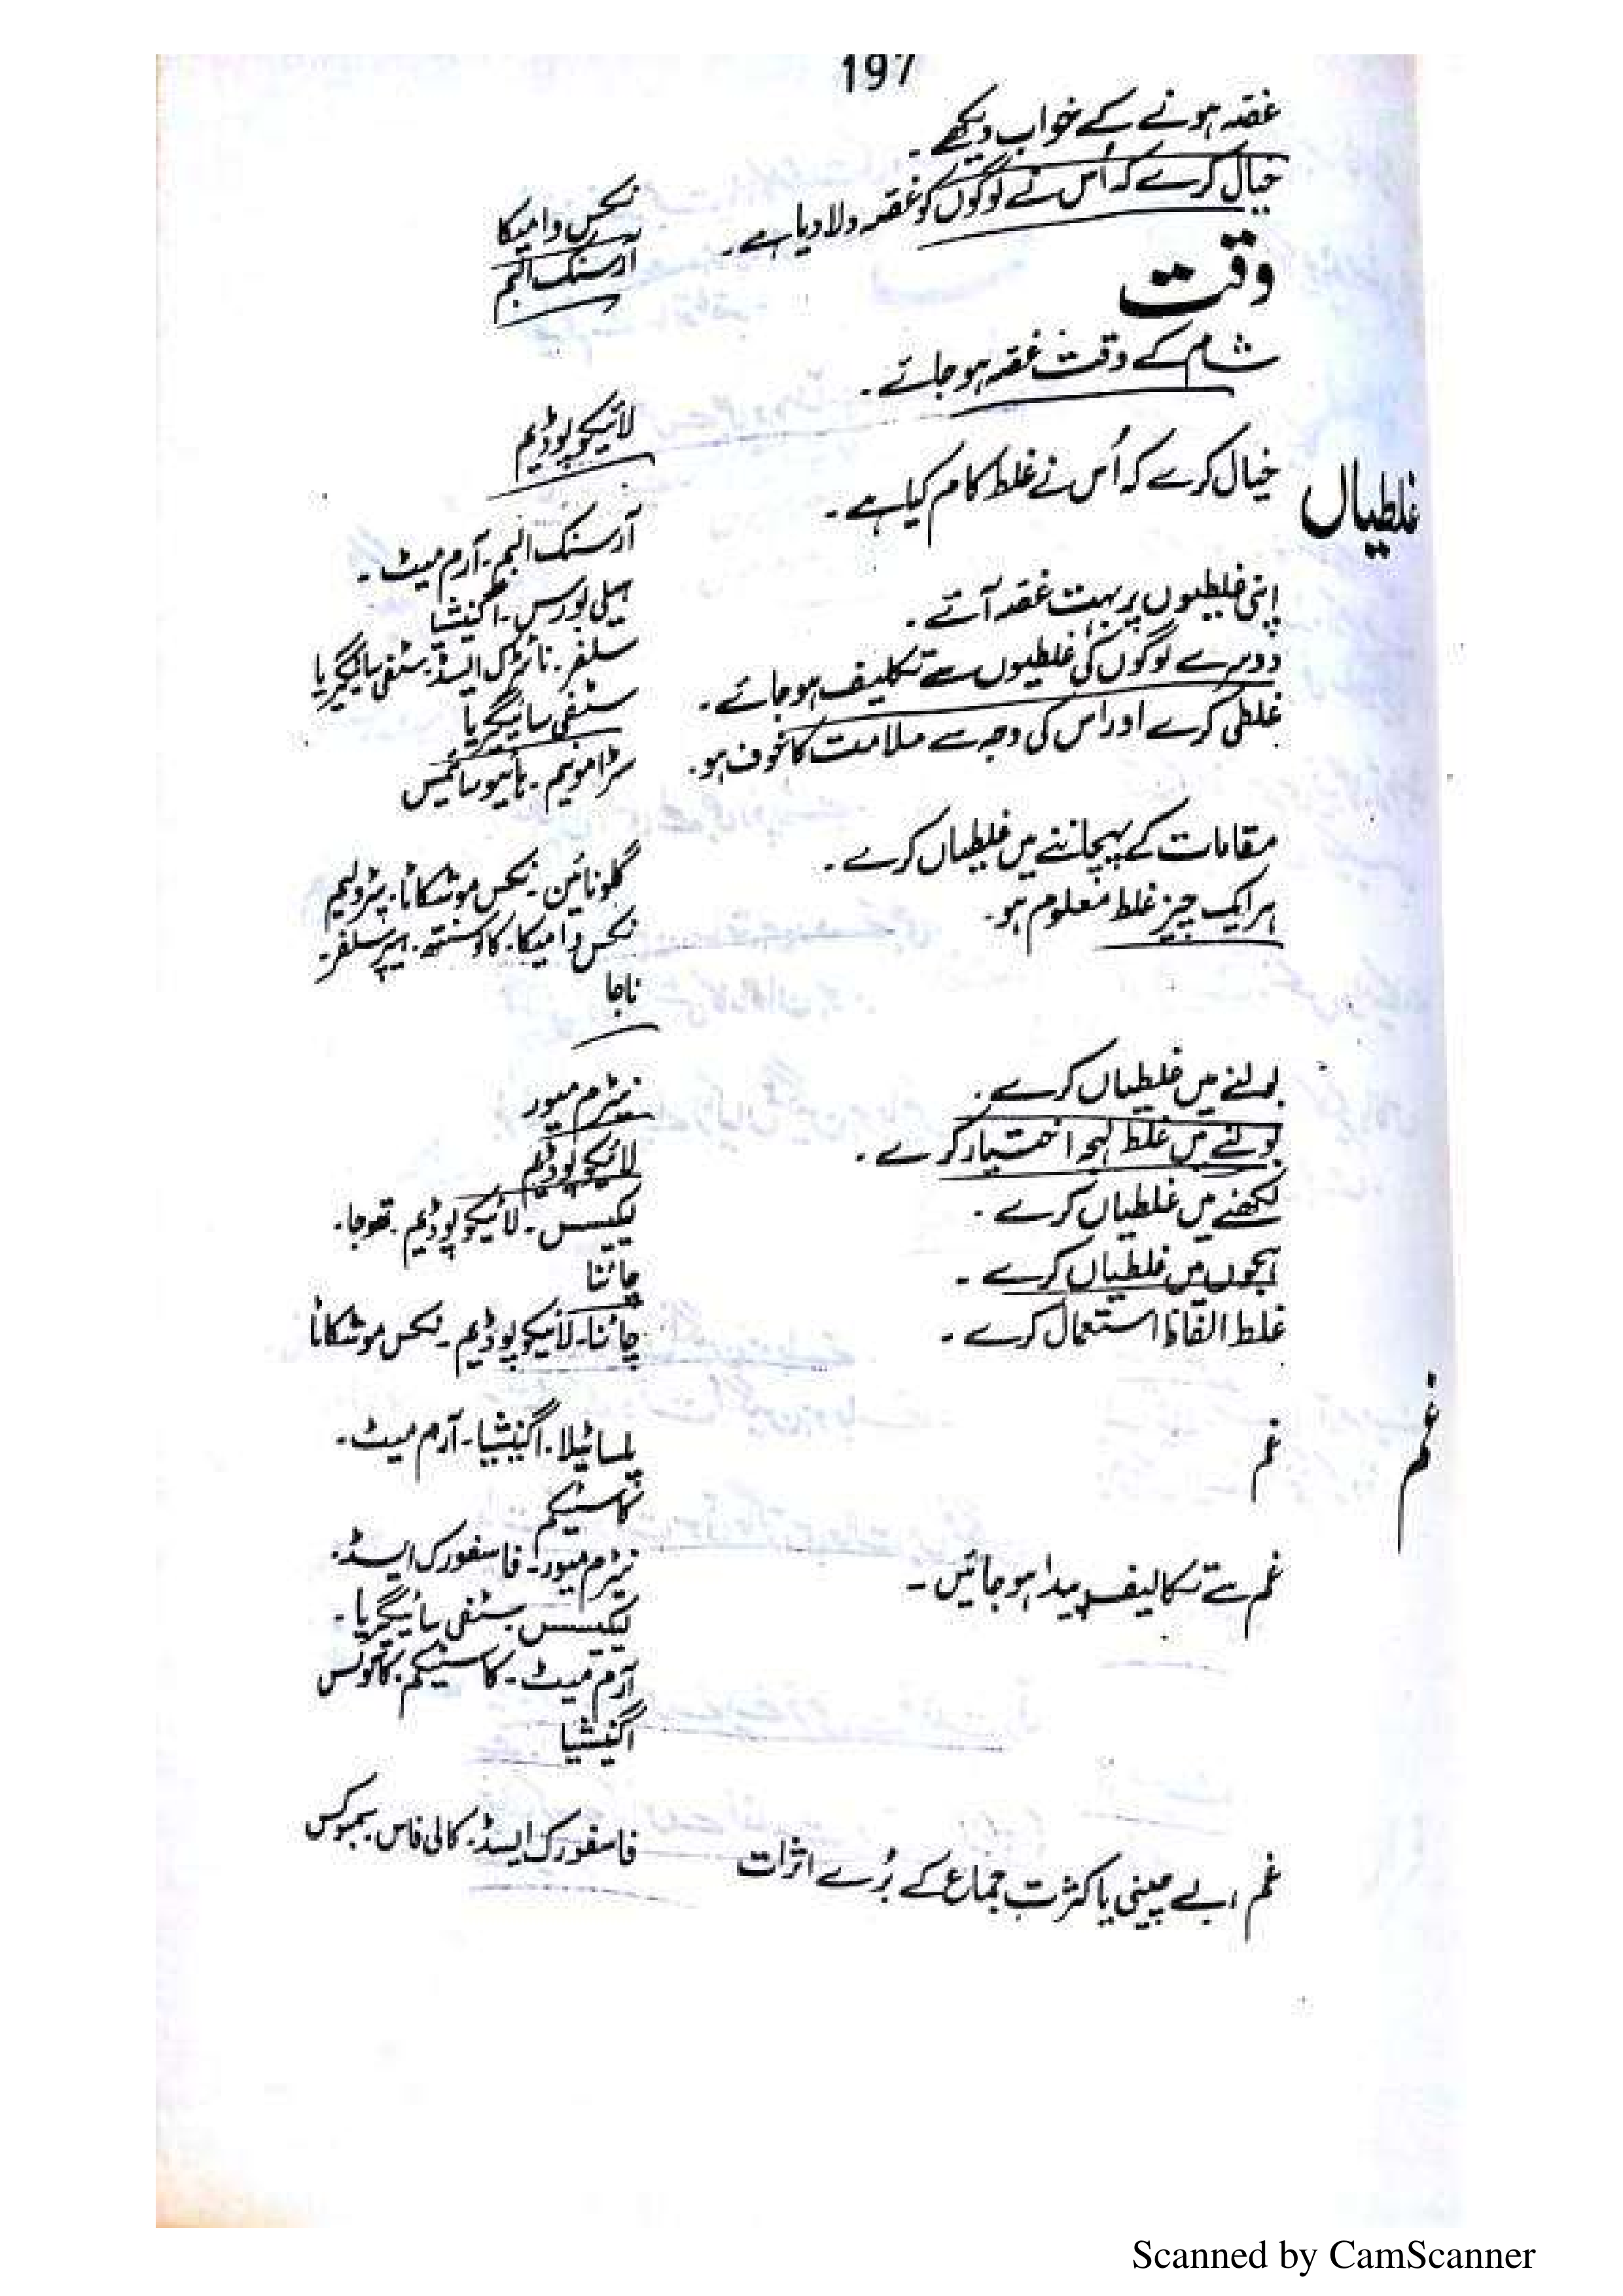 197
غصہ ہونے کے خواب دیکھے۔
نکس وامیکا
خیال کرے کہ اُس نے لوگوں کو غصہ دلا دیا ہے۔
آرسنک البم
وقت
شام کے وقت غصہ ہو جائے۔
لائیکوپوڈیم
غلطیاں
خیال کرے کہ اُس نے غلط کام کیا ہے۔
آرسنک البم۔ آرم میٹ۔
ہیلی بورس۔ اگنیشیا
اپنی غلطیوں پر بہت غصہ آئے۔
سلفر۔ نائٹرک ایسڈ۔ سٹفی سائیگریا
دوسرے لوگوں کی غلطیوں سے تکلیف ہو جائے۔
سٹفی سائیگریا
غلطی کرے اور اس کی وجہ سے ملامت کا خوف ہو۔
سٹرامونیم۔ ہائیوسائمس
مقامات کے پہچاننے میں غلطیاں کرے۔
گلونائن۔ نکس موشکاٹا۔ پٹرولیم
ہر ایک چیز غلط معلوم ہو۔
نکس وامیکا۔ ہیپر سلفر۔
ناجا
بولنے میں غلطیاں کرے۔
نیٹرم میور
بولنے میں غلط لہجہ اختیار کرے۔
لائیکوپوڈیم
لکھنے میں غلطیاں کرے۔
لیکیسس۔ لائیکوپوڈیم۔ تھوجا۔
ہجوں میں غلطیاں کرے۔
چائنا
غلط الفاظ استعمال کرے۔
چائنا۔ لائیکوپوڈیم۔ نکس موشکاٹا
غم
غم
پلساٹیلا۔ اگنیشیا۔ آرم میٹ۔
کاسٹیکم
غم سے تکالیف پیدا ہو جائیں۔
نیٹرم میور۔ فاسفورک ایسڈ۔
لیکیسس۔ سٹفی سائیگریا۔
آرم میٹ۔ کاسٹیکم۔
اگنیشیا
غم، بے چینی یا کثرتِ جماع کے بُرے اثرات
فاسفورک ایسڈ۔ کالی فاس۔
Scanned by CamScanner